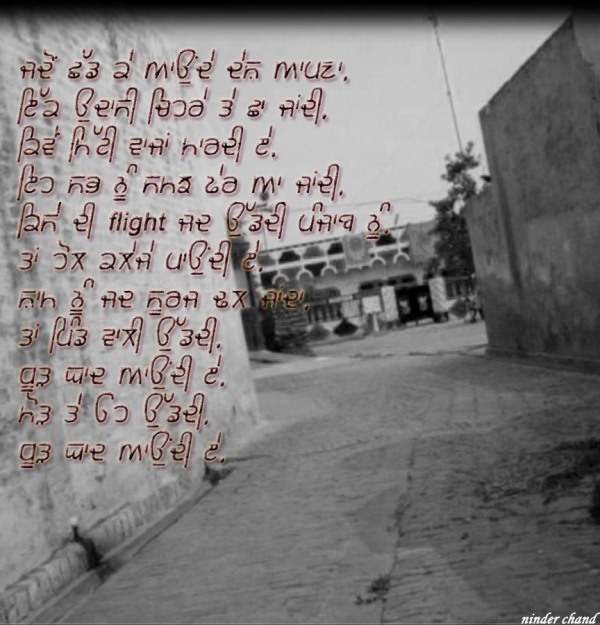 ਜਦੋਂ ਛੱਡ ਕੇ ਆਉਂਦੇ ਦੇਸ ਆਪਣਾ,
ਇੱਕ ਉਦਾਸੀ ਚਿਹਰੇ ਤੇ ਛਾ ਜਾਂਦੀ,
ਕਿਵੇਂ ਮਿੱਟੀ ਵਾਜਾਂ ਮਾਰਦੀ ਏ,
ਇਹ ਸਭ ਨੂੰ ਸਮਝ ਫੇਰ ਆ ਜਾਂਦੀ,
ਕਿਸੇ ਦੀ flight ਜਦ ਉੱਡਦੀ ਪੰਜਾਬ ਨੂੰ,
ਤਾਂ ਹੌਲ ਕਲੇਜੇ ਪਾਉਂਦੀ ਏ,
ਸ਼ਾਮ ਨੂੰ ਜਦ ਸੂਰਜ ਢਲ ਜਾਂਦਾ,
ਤਾਂ ਪਿੰਡ ਵਾਲੀ ਉੱਡਦੀ,
ਧੂੜ ਯਾਦ ਆਉਂਦੀ ਏ,
ਮੋੜ ਤੇ ਓਹ ਉੱਡਦੀ,
ਧੂੜ ਯਾਦ ਆਉਂਦੀ ਏ,
ninder chand